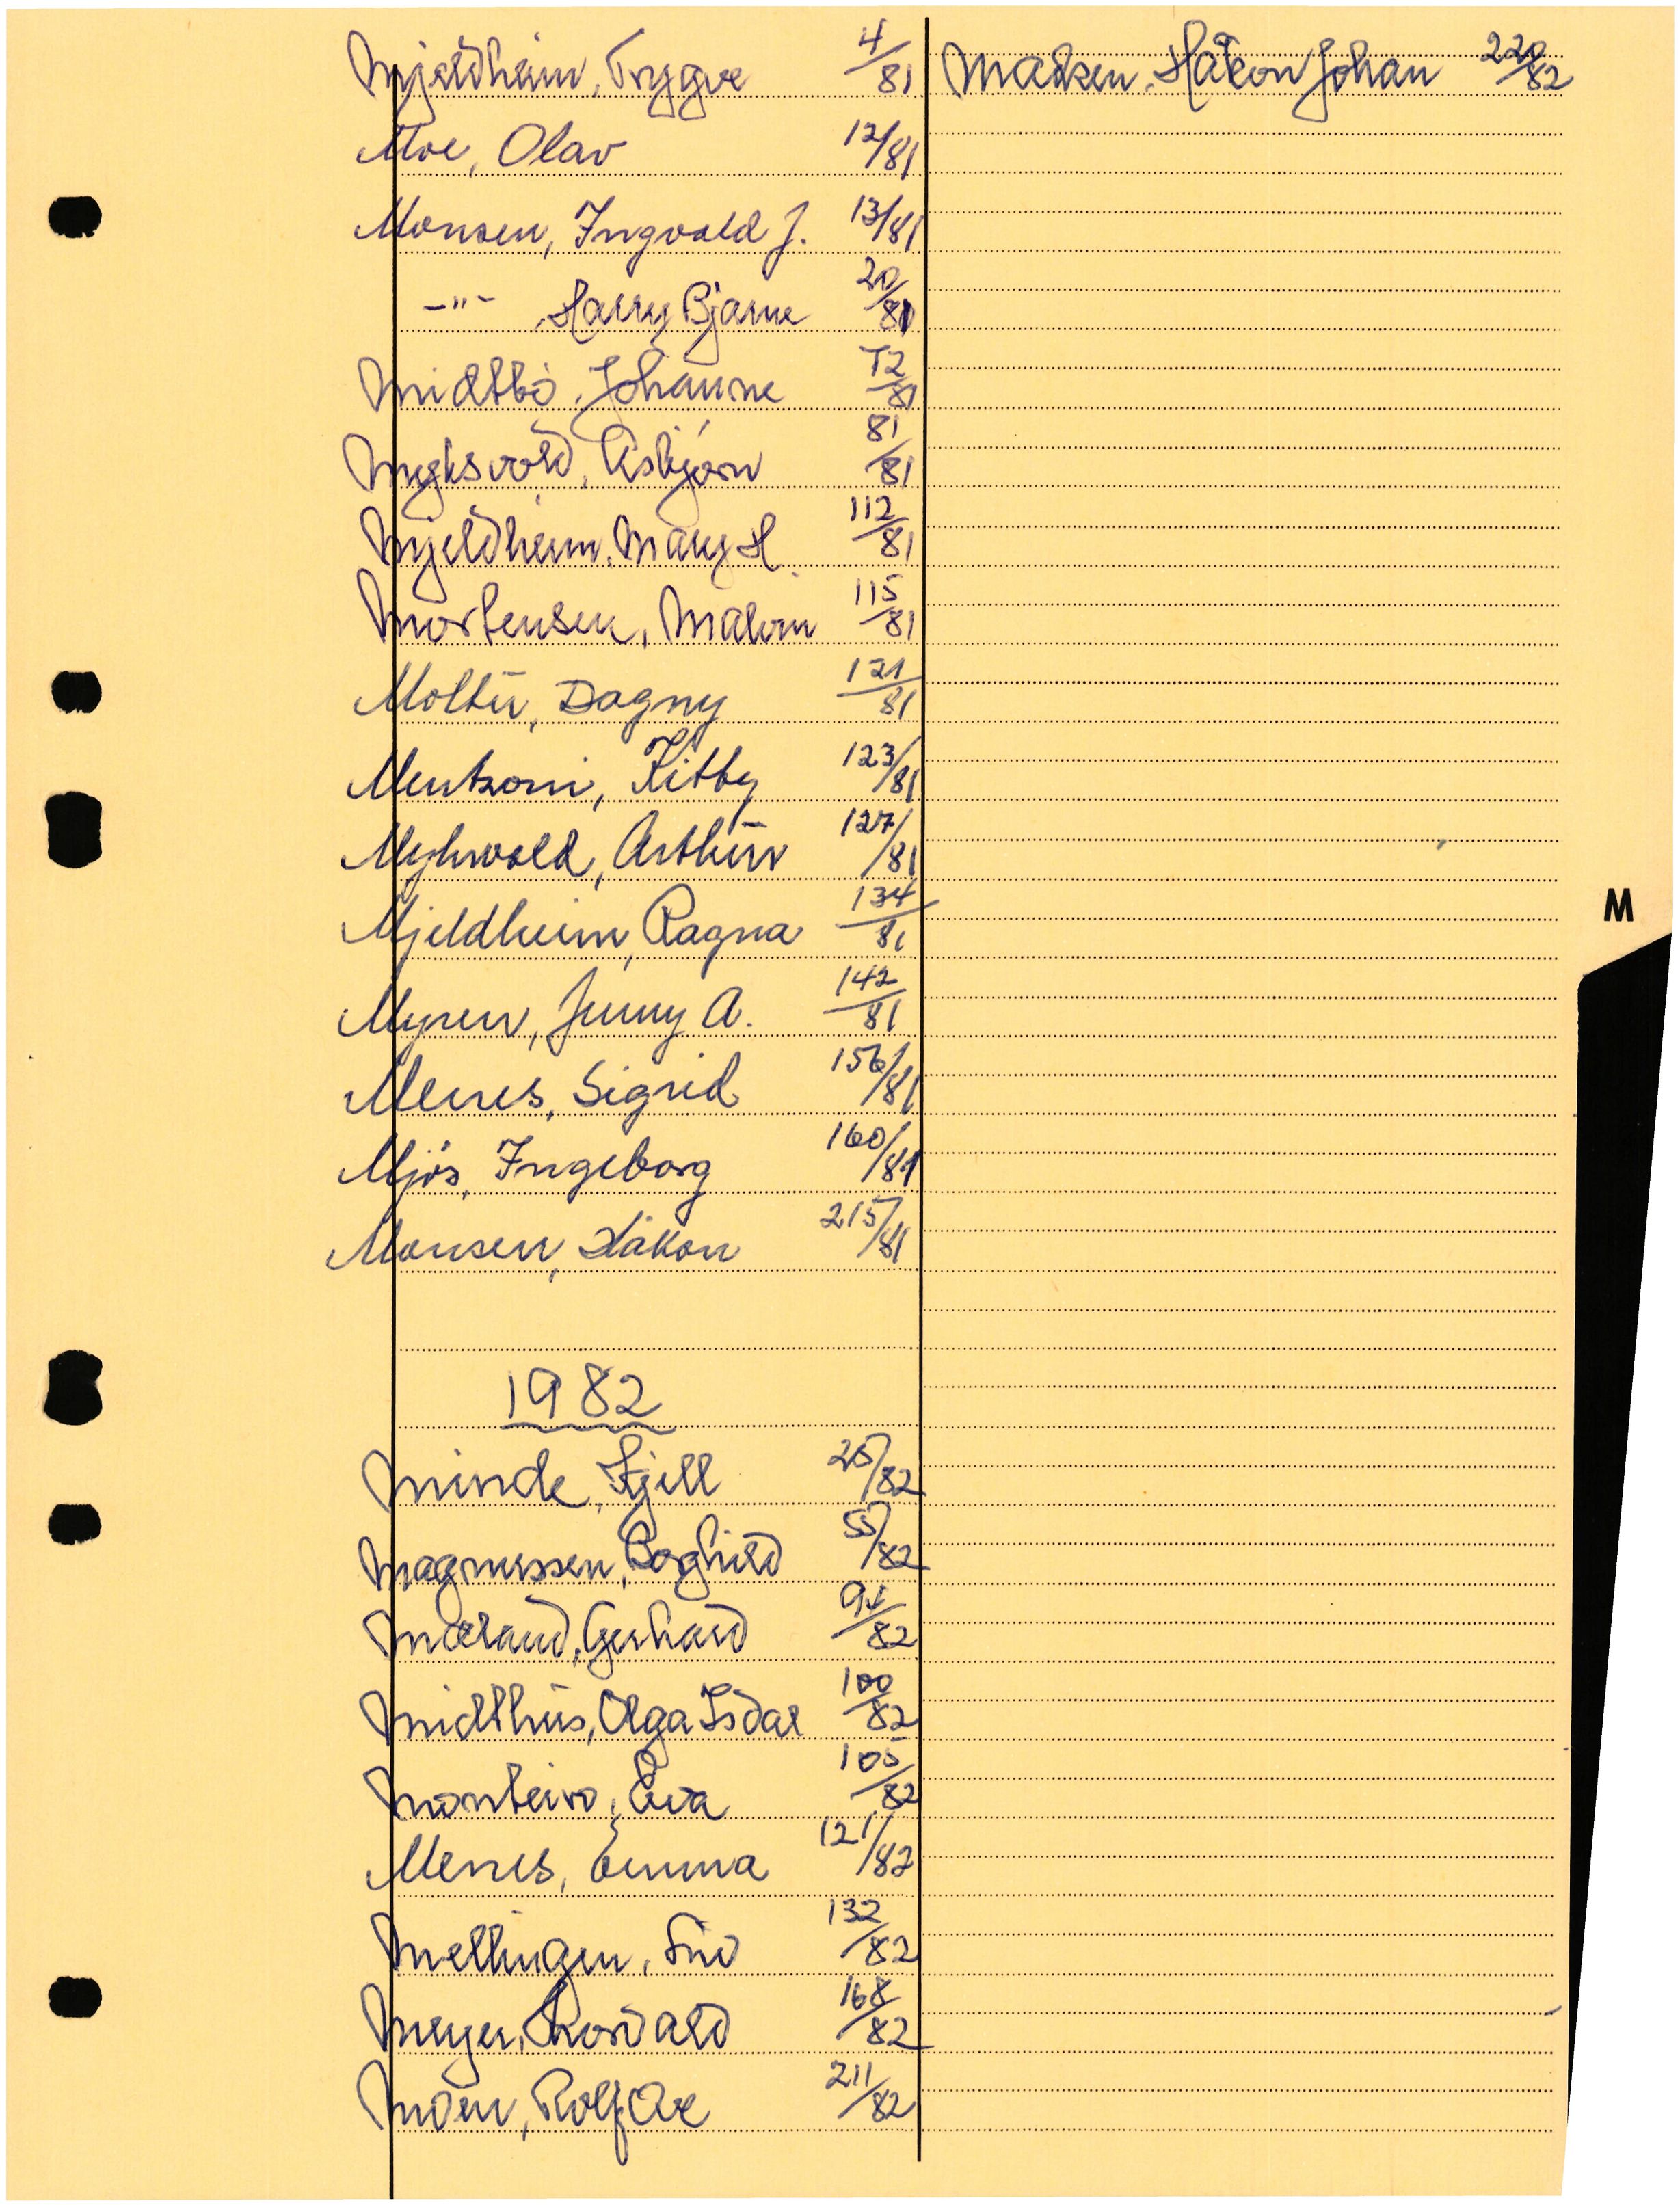 Mjeldheim, Trygve 4/81
Moe, Olav 12/81
Monsen, Ingvald J. 13/81
-"- , Harry Bjarne 20/81
Midtbö, Johanne 72/81
Myksvold, Asbjørn 81/81
Mjeldheim, Mary H. 112/81
Mortensen, Malvin 115/81
Moltu, Dagny 121/81
Mentzoni, Kitty 123/81
Myhrvold, Arthur 127/81
Mjeldheim, Ragna 134/81
Myren, Jenny A. 142/81
Menes, Sigrid 156/81
Mjös, Ingeborg 160/81
Monsen, Håkon 215/81
1982
Minde, Kjell 25/82
Magnussen, Borghild 55/82
Mæland, Gerhard 94/82
Midthus, Olga Isdal 100/82
Monteiro, Eva 105/82
Menes, Emma 121/82
Mellingen, Siv 132/82
Meyer, Thorvald 168/82
Moen, Rolf Ove 211/82
Madsen, Håkon Johan 220/82
M